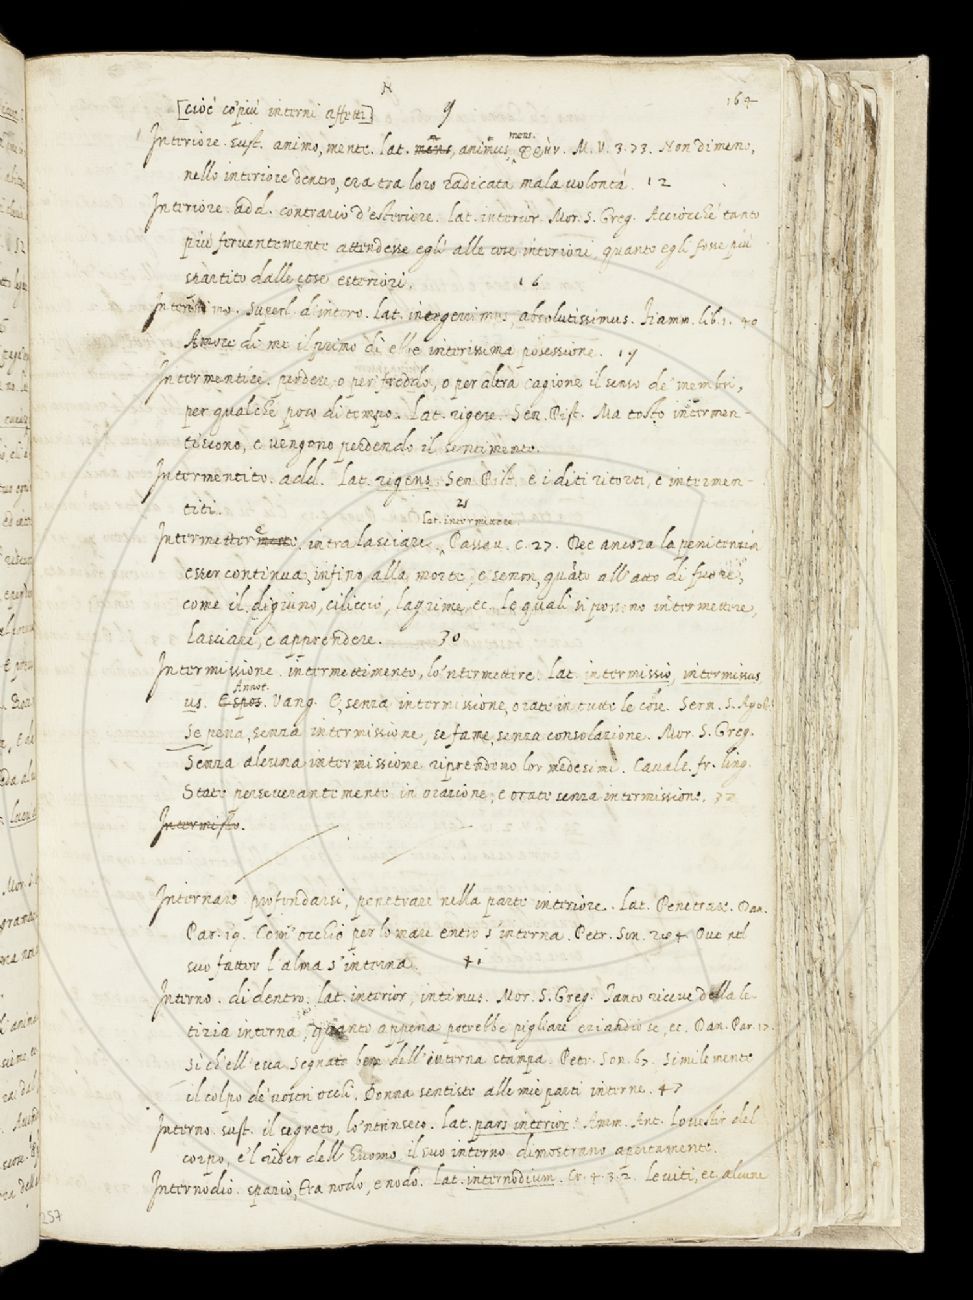 164
[cioè co' più interni affetti] 9
Interiore. sust. animo, mente. lat. mens, animus, mens. φρὴν. M. V. 3. 73. Non dimeno,
nello interiore dentro, era tra loro radicata mala volontà. 12
Interiore. add. contrario d'esteriore. lat. interior. Mor. S. Greg. Acciocchè tanto
più ferventemente attendesse egli alle cose interiori, quanto egli fosse più
spartito dalle cose esteriori. 16
Interissimo. Superl. d'intero. Lat. integerrimus, absolutissimus. Fiamm. lib. 1. 40
Amore di me il primo dì ebbe interissima possessione. 19
Intermentire. perdere, o per freddo, o per altra cagione il senso de' membri,
per qualche poco di tempo. Lat. rigere. Sen. Pist. Ma tosto intermen-
tiscono, e vengono perdendo il sentimento.
Intermentito. add. Lat. rigens. Sen. Pist. e i diti ritorti, e intermen-
titi. 25
lat. intermittere.
Intermettere. intralasciare. Passav. c. 27. Dee ancora la penitenzia
esser continua, infino alla morte, e se non, quāto all'atto di fuore,
come il digiuno, ciliccio, lagrime, ec. le quali si possono intermettere,
lasciare, e apprendere. 30
Intermissione. intermettimento, lo 'ntermettere. Lat. intermissio, intermissus
us. Espos. Annot. Vang. E, senza intermissione, orate in tutte le cose. Serm. S. Ago.
Se pena, senza intermissione, se fame, senza consolazione. Mor. S. Greg.
Senza alcuna intermissione riprendono lor medesimi. Cavalc. fr. ling.
State perseverantemente in orazione, e orate senza intermissione. 37
Intermisto.
Internare profondarsi, penetrare nella parte interiore. Lat. Penetrare. Dan.
Par. 19. Com' occhio per lo mare entro s'interna. Petr. Son. 284 Ove nel
suo fattor l'alma s'interna. 41
Interno. di dentro. lat. interior, intimus. Mor. S. Greg. Tanto riceve della le-
tizia interna, quanto appena potrebbe pigliare eziandio se, ec. Dan. Par. 17.
Sì ch'ell' esca segnata bene dell'interna stampa. Petr. Son. 67. Similemente
il colpo de' vostri occhi. Donna sentiste alle mie parti interne. 47
Interno. sust. il segreto, lo 'ntrinseco. Lat. pars interior. Amm. Ant. Lo vestir del
corpo, e 'l rider dell' Huomo il suo interno dimostrano apertamente.
Internodio. spazio, tra nodo, e nodo. Lat. internodium. Cr. 4. 3. 2. Le viti, ec. alcune
257